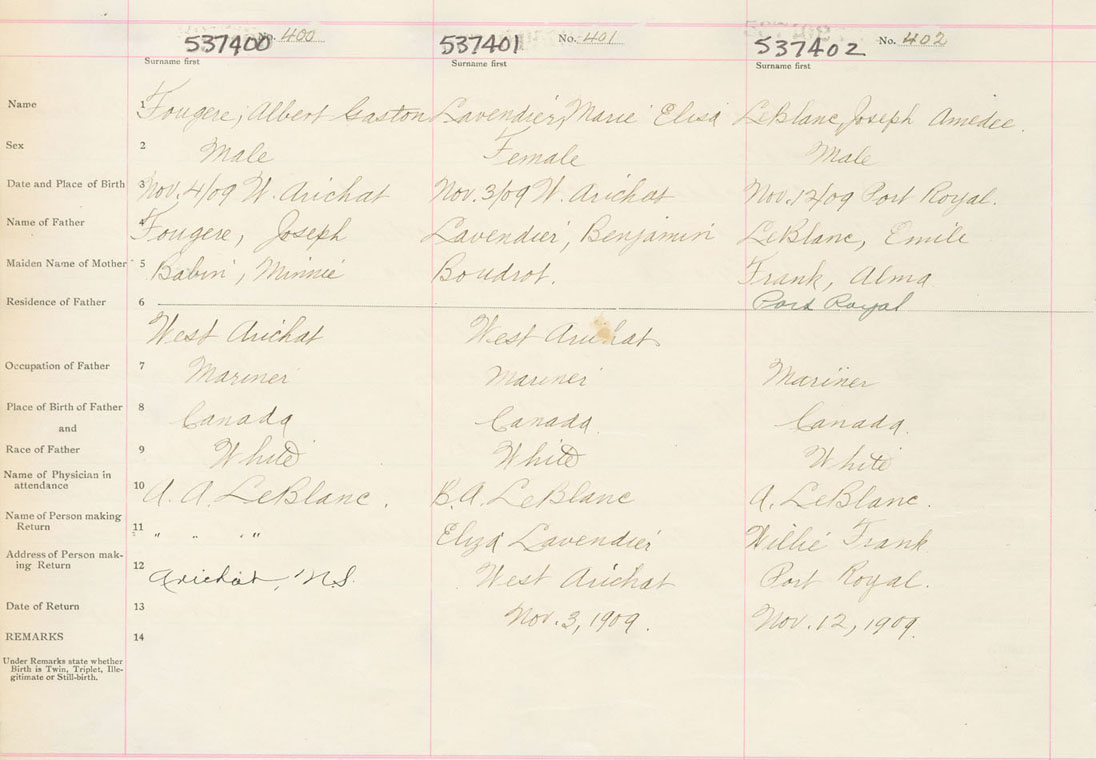 537400 No. 400 537401 No. 401 537402 No. 402
Surname first Surname first Surname first
Name 1 Fougere, Albert Gaston Lavendier, Marie Elisa LeBlanc, Joseph Amedee.
Sex 2 Male Female Male
Date and Place of Birth 3 Nov. 4/09 W. Arichat Nov. 3/09 W. Arichat Nov. 12/09 Port Royal.
Name of Father 4 Fougere, Joseph Lavendier, Benjamin LeBlanc, Emile
Maiden Name of Mother 5 Babin, Minnie Boudrot. Frank, Alma
Residence of Father 6 Port Royal
West Arichat West Arichat
Occupation of Father 7 Mariner Mariner Mariner
Place of Birth of Father 8 Canada Canada. Canada.
and
Race of Father 9 White White White
Name of Physician in
attendance 10 A. A. LeBlanc. B.A. LeBlanc A. LeBlanc.
Name of Person making
Return 11 " " " Eliza Lavendier Willie Frank
Address of Person mak-
ing Return 12 Arichat, N.S. West Arichat Port Royal.
Date of Return 13 Nov. 3, 1909. Nov. 12, 1909.
REMARKS 14
Under Remarks state whether
Birth is Twin, Triplet, Ille-
gitimate or Still-birth.